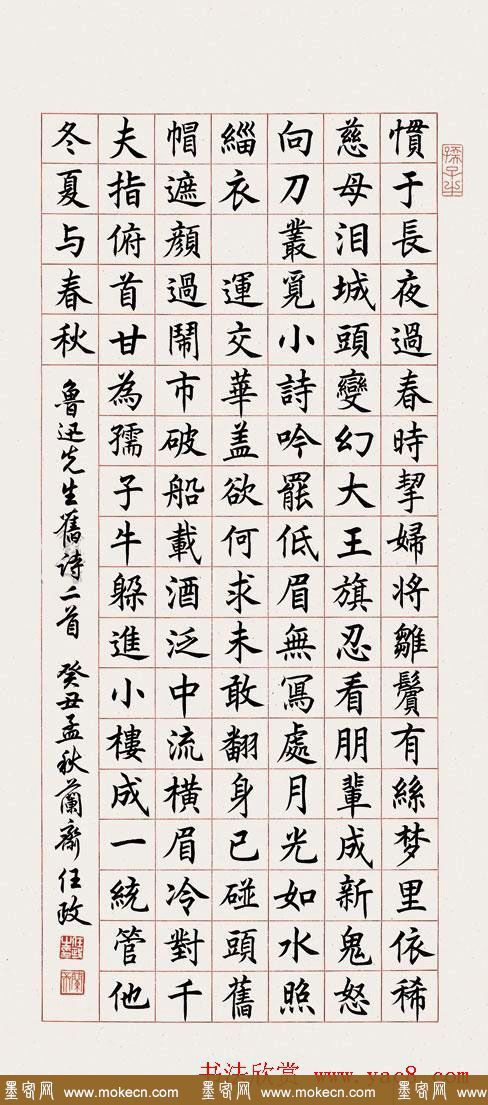 慣于長夜過春時挈婦将雛鬢有絲梦里依稀
慈母泪城頭變幻大王旗忍看朋輩成新鬼怒
向刀叢覓小詩吟罷低眉無寫處月光如水照
緇衣 運交華盖欲何求未敢翻身已碰頭舊
帽遮顔過鬧市破船載酒泛中流橫眉冷對千
夫指俯首甘為孺子牛躲進小樓成一統管他
冬夏与春秋
魯迅先生舊詩二首 癸丑孟秋蘭齋任政
孺子牛
书法欣赏 www.yac8.com
墨客网 www.mokecn.com 墨客网 www.mokecn.com 墨客网 www.mokecn.com